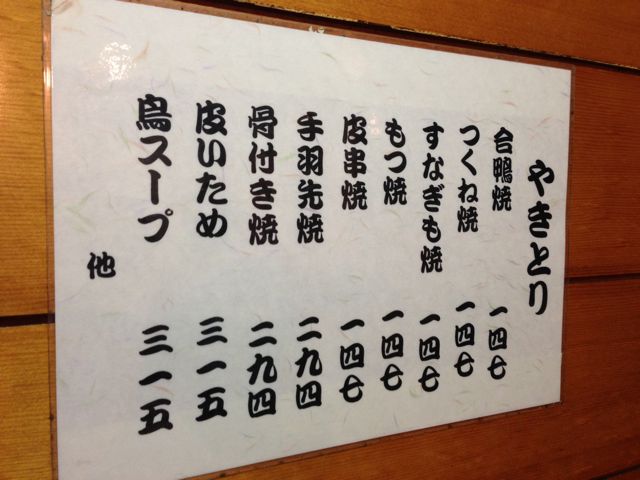 やきとり
合鴨焼 一四七
つくね焼 一四七
すなぎも焼 一四七
もつ焼 一四七
皮串焼 一四七
手羽先焼 二九四
骨付き焼 二九四
皮いため 三一五
鳥スープ 三一五
他